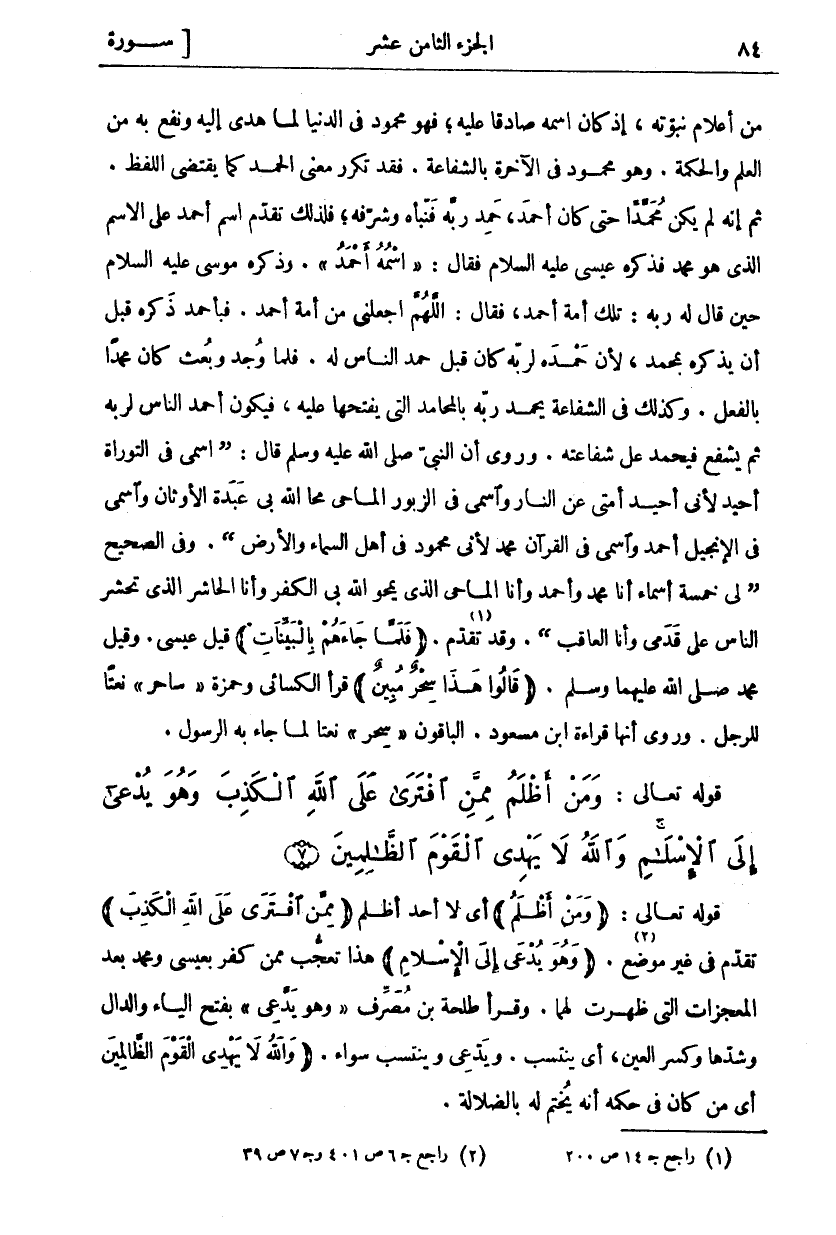 ٨٤ الجزء الثامن عشر [ ســورة
من أعلام نبوّته ، إذ كان اسمه صادقا عليه ؛ فهو محمود فى الدنيا لمـا هدى إليه ونفع به من
العلم والحكمة . وهو محمـود فى الآخرة بالشفاعة . فقد تكرر معنى الحمـد كما يقتضى اللفظ .
ثم إنه لم يكن مُحَمَّدًا حتى كان أحمدَ، حَمِد ربَّه فَنَبأه وشرّفه؛ فلذلك تقدّم اسم أحمد على الاسم
الذى هو محمد فذكره عيسى عليه السلام فقال : « اسْمُهُ أَحْمَدُ » . وذكره موسى عليه السلام
حين قال له ربه : تلك أمة أحمد، فقال : اللَّهُمَّ اجعلنى من أمة أحمد . فبأحمد ذَكره قبل
أن يذكره بمحمد ، لأن حَمْـدَه لربّه كان قبل حمد النـاس له . فلما وُجد وبُعث كان محمدًا
بالفعل . وكذلك فى الشفاعة يحمـد ربّه بالمحامد التى يفتحها عليه ، فيكون أحمد الناس لربه
ثم يشفع فيحمد على شفاعته . وروى أن النبىّ صلى الله عليه وسلم قال : ” اسمى فى التوراة
أحيد لأنى أحيـد أمتى عن النـار وآسمى فى الزبور المـاحى محا الله بى عَبَدة الأوثان وآسمى
فى الإنجيل أحمد وآسمى فى القرآن محمد لأنى محمود فى أهل السماء والأرض “ . وفى الصحيح
” لى خمسة أسماء أنا محمد وأحمد وأنا المـاحى الذى يمحو الله بى الكفر وأنا الحاشر الذى تحشر
الناس على قَدَمى وأنا العاقب “ . وقد تقدّم (١) . ﴿ فَلَمَّـا جَاءَهُمْ بِالْبَيِّنَاتِ ﴾ قيل عيسى . وقيل
محمد صـلى الله عليهما وسـلم . ﴿ قَالُوا هَـذَا سِحْرٌ مُبِينٌ ﴾ قرأ الكسائى وحمزة « ساحر » نعتًا
للرجل . وروى أنها قراءة ابن مسعود . الباقون « سِحر » نعتا لمـا جاء به الرسول .
قوله تعـالى : وَمَنْ أَظْلَمُ مِمَّنِ ٱفْتَرَىٰ عَلَى ٱللَّهِ ٱلْكَذِبَ وَهُوَ يُدْعَىٰٓ
إِلَى ٱلْإِسْلَٰمِ ۚ وَٱللَّهُ لَا يَهْدِى ٱلْقَوْمَ ٱلظَّٰلِمِينَ ٧
قوله تعـالى : ﴿ وَمَنْ أَظْلَمُ ﴾ أى لا أحد أظـلم ﴿ مِمَّنِ ٱفْتَرَى عَلَى اللهِ الْكَذِبَ ﴾
تقدّم فى غير موضع (٢) . ﴿ وَهُوَ يُدْعَى إِلَى الْإِسْـلَامِ ﴾ هذا تعجّب ممن كفر بعيسى ومحمد بعد
المعجزات التى ظهـرت لهما . وقـرأ طلحة بن مُصَرِّف « وهو يَدَّعِى » بفتح اليـاء والدال
وشدّها وكسر العين، أى ينتسب . ويَدّعى وينتسب سواء . ﴿ وَاللهُ لَا يَهْدِى الْقَوْمَ الظَّالِمِينَ
أى من كان فى حكمه أنه يُختم له بالضلالة .
(١) راجع جـ ١٤ ص ٢٠٠ (٢) راجع جـ ٦ ص ٤٠١ وجـ ٧ ص ٣٩